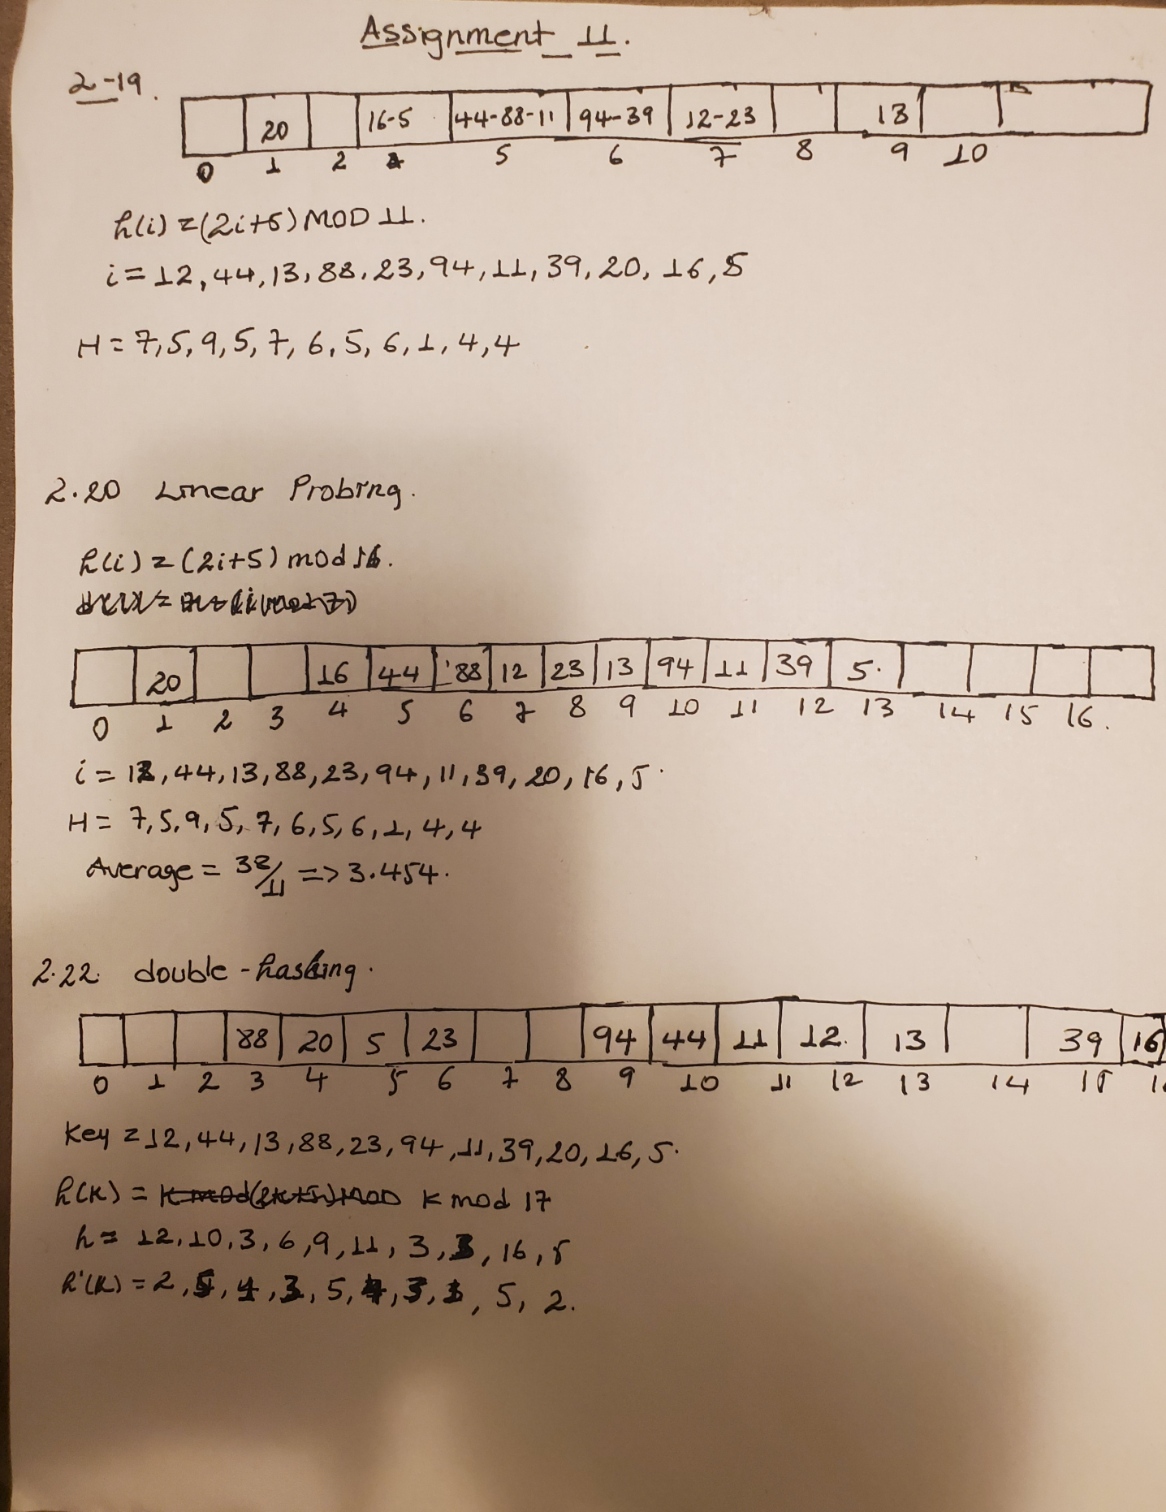 Assignment 11.
2-19.
20 16-5 44-88-11 94-39 12-23 13
0 1 2 4 5 6 7 8 9 10
h(i) = (2i+5) MOD 11.
i = 12, 44, 13, 88, 23, 94, 11, 39, 20, 16, 5
H = 7, 5, 9, 5, 7, 6, 5, 6, 1, 4, 4
2.20 Linear Probing.
h(i) = (2i+5) mod 16.
20 16 44 88 12 23 13 94 11 39 5.
0 1 2 3 4 5 6 7 8 9 10 11 12 13 14 15 16.
i = 12, 44, 13, 88, 23, 94, 11, 39, 20, 16, 5.
H = 7, 5, 9, 5, 7, 6, 5, 6, 1, 4, 4
Average = 38/11 => 3.454.
2.22. double-hashing.
88 20 5 23 94 44 11 12. 13 39 16
0 1 2 3 4 5 6 7 8 9 10 11 12 13 14 15
Key = 12, 44, 13, 88, 23, 94, 11, 39, 20, 16, 5.
h(k) = k mod 17
h = 12, 10, 3, 6, 9, 11, 3, 3, 16, 5
h'(k) = 2, 5, 4, 3, 5, 4, 3, 3, 5, 2.